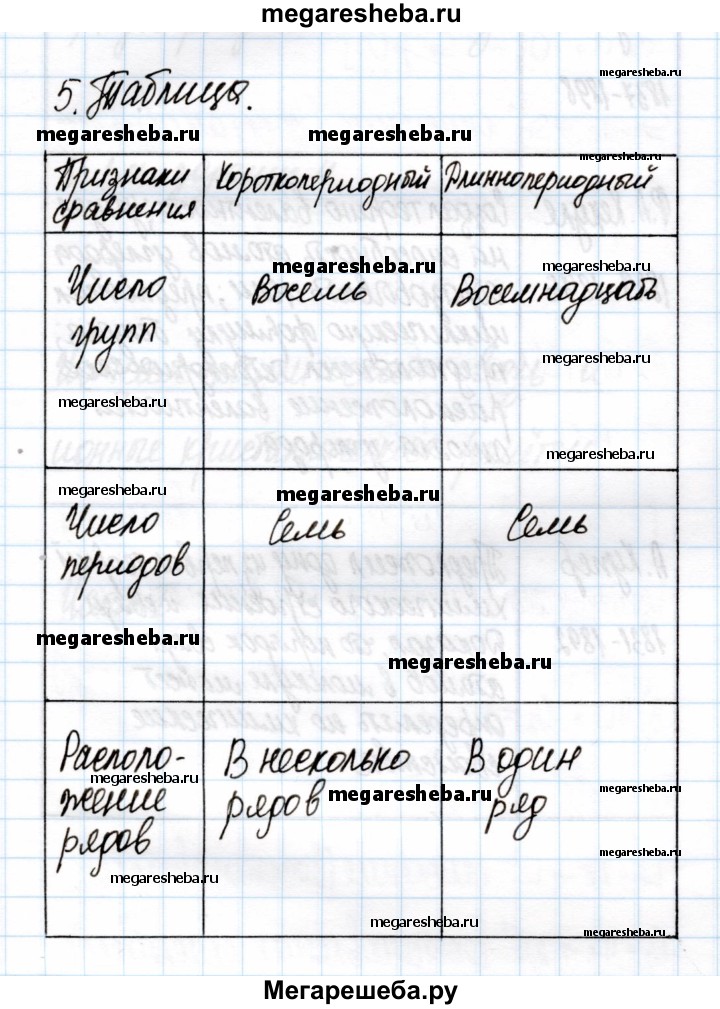 megaresheba.ru
megaresheba.ru
5. Таблица.
megaresheba.ru megaresheba.ru
megaresheba.ru
Признаки Короткопериодный Длиннопериодный
сравнения
megaresheba.ru megaresheba.ru
Число Восемь Восемнадцать
групп
megaresheba.ru
megaresheba.ru
megaresheba.ru
megaresheba.ru megaresheba.ru
Число Семь Семь
периодов
megaresheba.ru
megaresheba.ru
Располо- В несколько В один
megaresheba.ru megaresheba.ru megaresheba.ru
жение рядов ряд
рядов
megaresheba.ru
megaresheba.ru
megaresheba.ru
megaresheba.ru
Мегарешеба.ру